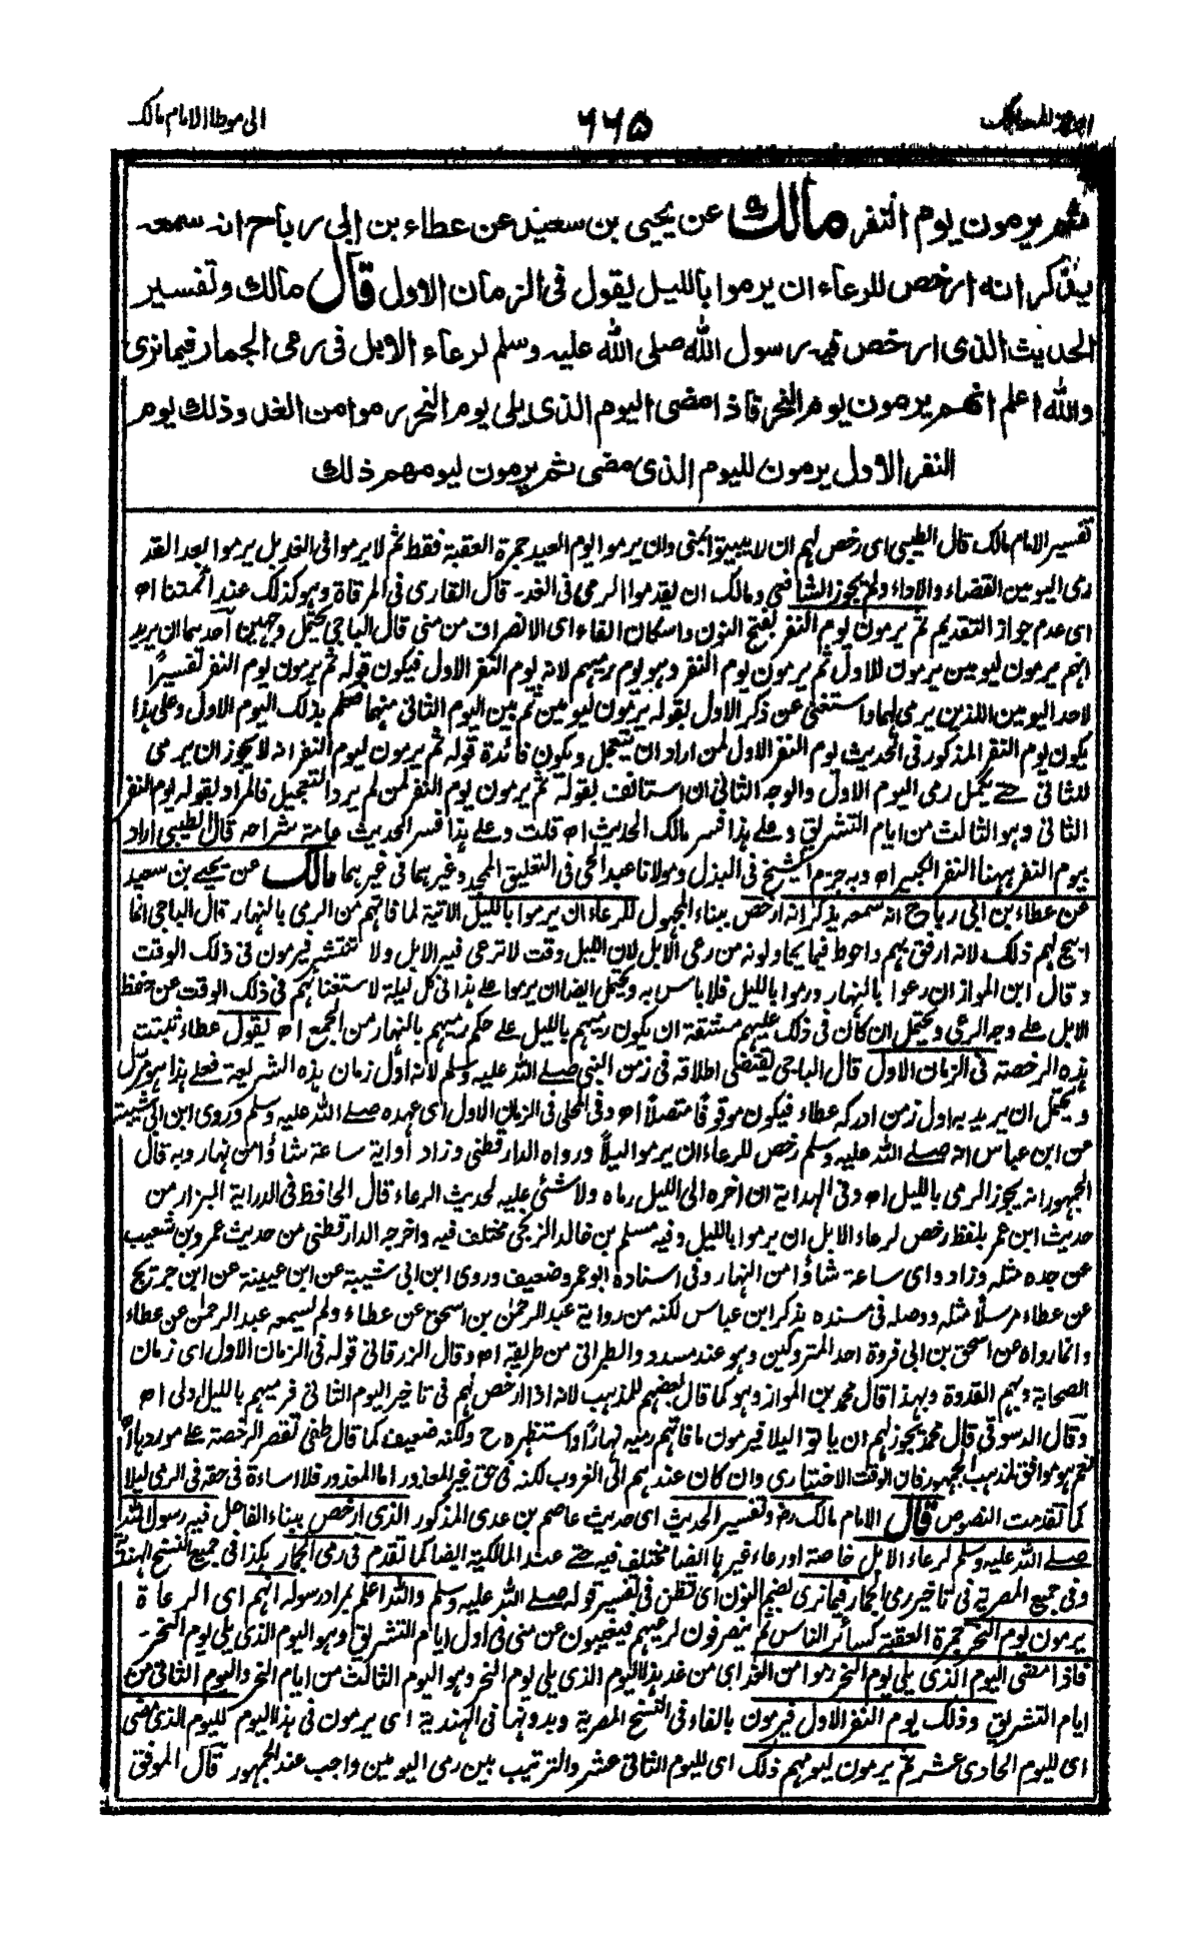 اوجز المسالك
٦٦٥
الى موطا الامام مالك
ثم يرمون يوم النفر مالك عن يحيى بن سعيد عن عطاء بن ابى رباح انه سمعه
يذكر انه ارخص للرعاء ان يرموا بالليل يقول فى الزمان الاول قال مالك وتفسير
الحديث الذى ارخص فيه رسول الله صلى الله عليه وسلم لرعاء الابل فى رمى الجمار فيما نرى
والله اعلم انهم يرمون يوم النحر فاذا مضى اليوم الذى يلى يوم النحر رموا من الغد وذلك يوم
النفر الاول يرمون لليوم الذى مضى ثم يرمون ليومهم ذلك
تفسير الامام مالك قال الطيبى اى رخص لهم ان لا يبيتوا بمنى وان يرموا يوم العيد جمرة العقبة فقط ثم لا يرموا فى الغد بل يرموا بعد الغد
رمى اليومين القضاء والاداء ولم يجوز الشافعى ومالك ان يقدموا الرمى فى الغد۔ قال القارى فى المرقاة وهو كذلك عند ائمتنا اه
اى عدم جواز التقديم ثم يرمون يوم النفر بفتح النون واسكان الفاء اى الانصراف من منى قال الباجى يحتمل وجهين احدهما ان يريد
انهم يرمون ليومين يرمون للاول ثم يرمون يوم النفر وهو يوم رميهم لانه يوم النفر الاول فيكون قوله ثم يرمون يوم النفر تفسيرًا
لاحد اليومين اللذين يرمى لهما واستغنى عن ذكر الاول بقوله يرمون ليومين ثم بين اليوم الثانى منهما فعلم بذلك اليوم الاول وعلى هذا
يكون يوم النفر المذكور فى الحديث يوم النفر الاول لمن اراد ان يتعجل ويكون فائدة قوله ثم يرمون ليوم النفر انه لا يجوز ان يرمى
للثانى حتے يكمل رمى اليوم الاول والوجه الثانى ان استانف بقوله ثم يرمون يوم النفر لمن لم يرد التعجيل فالمراد بقوله يوم النفر
الثانى وهو الثالث من ايام التشريق وعلے هذا فسر مالك الحديث اه قلت وعلے هذا فسر الحديث عامة شراحه قال الطيبى اراد
بيوم النفر ههنا النفر الكبير اه وبه جزم الشيخ فى البذل ومولانا عبد الحى فى التعليق الممجد وغيرهما فى غيرهما مالك عن يحيے بن سعيد
عن عطاء بن ابى رباح انه سمعه يذكر انه ارخص ببناء المجهول للرعاء ان يرموا بالليل الاتية لما فاتهم من الرمى بالنهار قال الباجى انما
ابيح لهم ذلك لانه ارفق بهم واحوط فيما يحاولونه من رعى الابل لان الليل وقت لا ترعى فيه الابل ولا تنتشر فيرمون فى ذلك الوقت
وقال ابن المواز ان رعوا بالنهار ورموا بالليل فلا باس به ويحتمل ايضا ان يرموا علے هذا فى كل ليلة لاستغنائهم فى ذلك الوقت عن حفظ
الابل علے وجه الرعى ويحتمل ان كان فى ذلك عليهم مشقة ان يكون رميهم بالليل علے حكم رميهم بالنهار من الجمع اه يقول عطاء ثبتت
هذه الرخصة فى الزمان الاول قال الباجى يقتضى اطلاقه فى زمن النبى صلے الله عليه وسلم لانه اول زمان هذه الشريعة فعلے هذا هو مرسل
ويحتمل ان يريد به اول زمن ادركه عطاء فيكون موقوفا متصلًا اه وفى المحلى فى الزمان الاول اى عهده صلے الله عليه وسلم وروى ابن ابى شيبة
عن ابن عباس انه صلے الله عليه وسلم رخص للرعاء ان يرموا ليلًا ورواه الدارقطنى وزاد اوايّة ساعة شاؤا من نهار وبه قال
الجمهور انه يجوز الرمى بالليل اه وفى الهداية ان اخره الى الليل رماه ولا شئ عليه لحديث الرعاء قال الحافظ فى الدراية البزار من
حديث ابن عمر بلفظ رخص لرعاء الابل ان يرموا بالليل وفيه مسلم بن خالد الزنجى مختلف فيه واخرجه الدارقطنى من حديث عمرو بن شعيب
عن جده مثله وزاد واى ساعة شاؤا من النهار وفى اسناده ابو عمر وضعيف وروى ابن ابى شيبة عن ابن عيينة عن ابن جريج
عن عطاء مرسلًا مثله ووصله فى مسنده بذكر ابن عباس لكنه من رواية عبد الرحمٰن بن اسحق عن عطاء ولم يسمعه عبد الرحمٰن عن عطاء
وانما رواه عن اسحق بن ابى فروة احد المتروكين وهو عند مسدد والطبرانى من طريقه اه وقال الزرقانى قوله فى الزمان الاول اى زمان
الصحابة وبهم القدوة وبهذا قال محمد بن المواز وهو كما قال بعضهم للمذهب لانه اذا ارخص لهم فى تاخير اليوم الثانى فرميهم بالليل اولى اه
وقال الدسوقى قال محمد يجوز لهم ان ياتوا ليلا فيرمون ما فاتهم رميه نهارًا واستظهره ح ولكنه ضعيف كما قال طفى لقصر الرخصة علے موردها اه
نعم هو موافق لمذهب الجمهور فان الوقت الاختيارى وان كان عندهم الى الغروب لكنه فى حق غير المعذور اما المعذور فلا اساءة فى حقه فى الرمى ليلا
كما تقدمت النصوص قال الامام مالك رضـ وتفسير الحديث اى حديث عاصم بن عدى المذكور الذى ارخص ببناء الفاعل فيه رسول الله
صلے الله عليه وسلم لرعاء الابل خاصة او رعاء غيرها ايضا مختلف فيه حتے عند المالكية ايضا كما تقدم فى رمى الجمار هكذا فى جميع النسخ الهندية
وفى جميع المصرية فى تاخير رمى الجمار فيما نرى بضم النون اى نظن فى تفسير قوله صلے الله عليه وسلم والله اعلم بمراد رسوله انهم اى الرعاة
يرمون يوم النحر جمرة العقبة كسائر الناس ثم ينصرفون لرعيهم فيغيبون عن منى فى اول ايام التشريق وهو اليوم الذى يلى يوم النحر۔
فاذا مضى اليوم الذى يلى يوم النحر رموا من الغد اى من غد هذا اليوم الذى يلى يوم النحر وهو اليوم الثالث من ايام النحر واليوم الثانى من
ايام التشريق وذلك يوم النفر الاول فيرمون بالفاء فى النسخ المصرية وبدونها فى الهندية اى يرمون فى هذا اليوم لليوم الذى مضى
اى لليوم الحادى عشر ثم يرمون ليومهم ذلك اى لليوم الثانى عشر والترتيب بين رمى اليومين واجب عند الجمهور قال الموفق